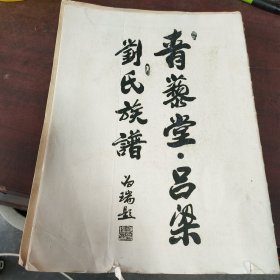 青藜堂·吕梁
劉氏族譜
为瑞题